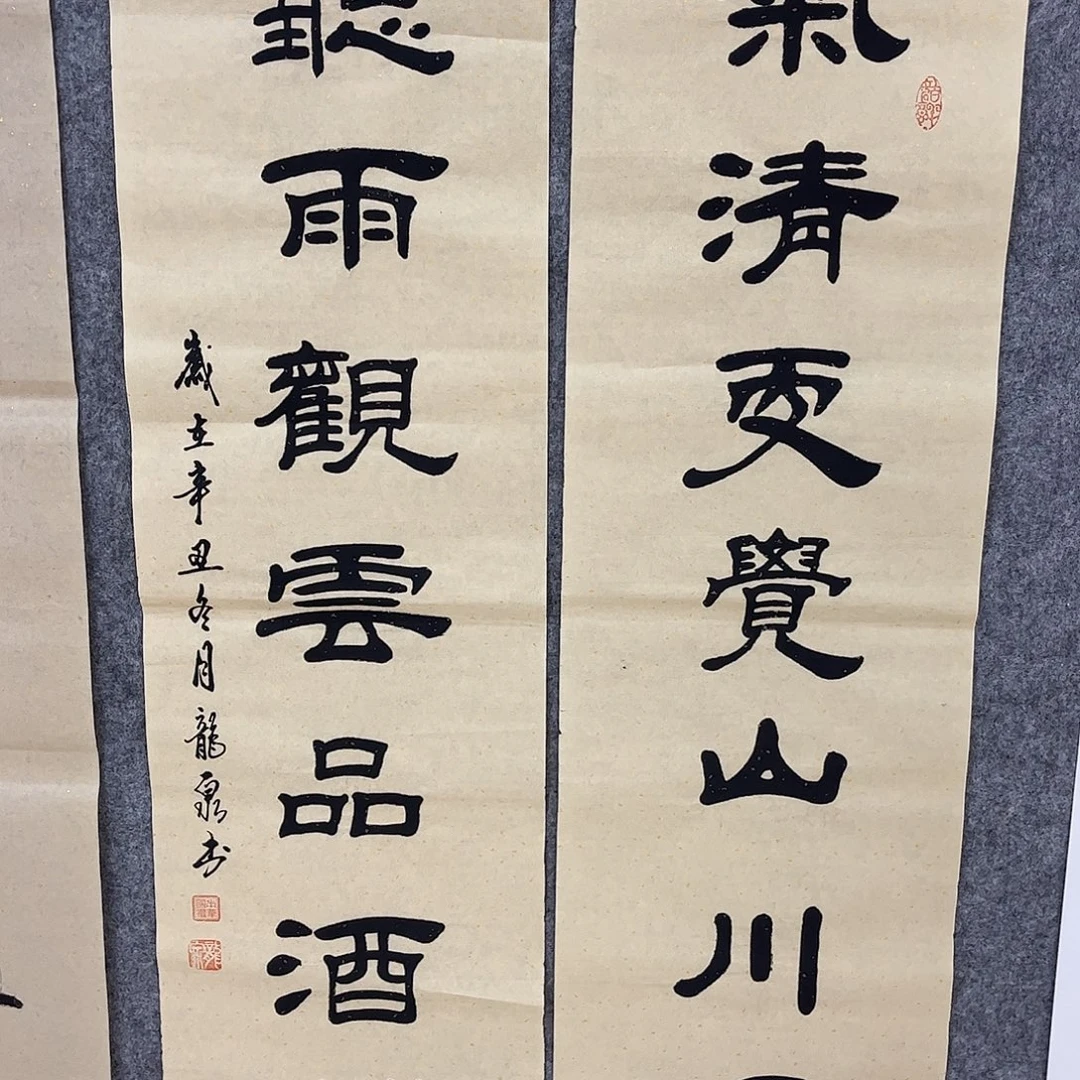 氣清更覺山川
聽雨觀雲品酒
歲在辛丑冬月龍泉書